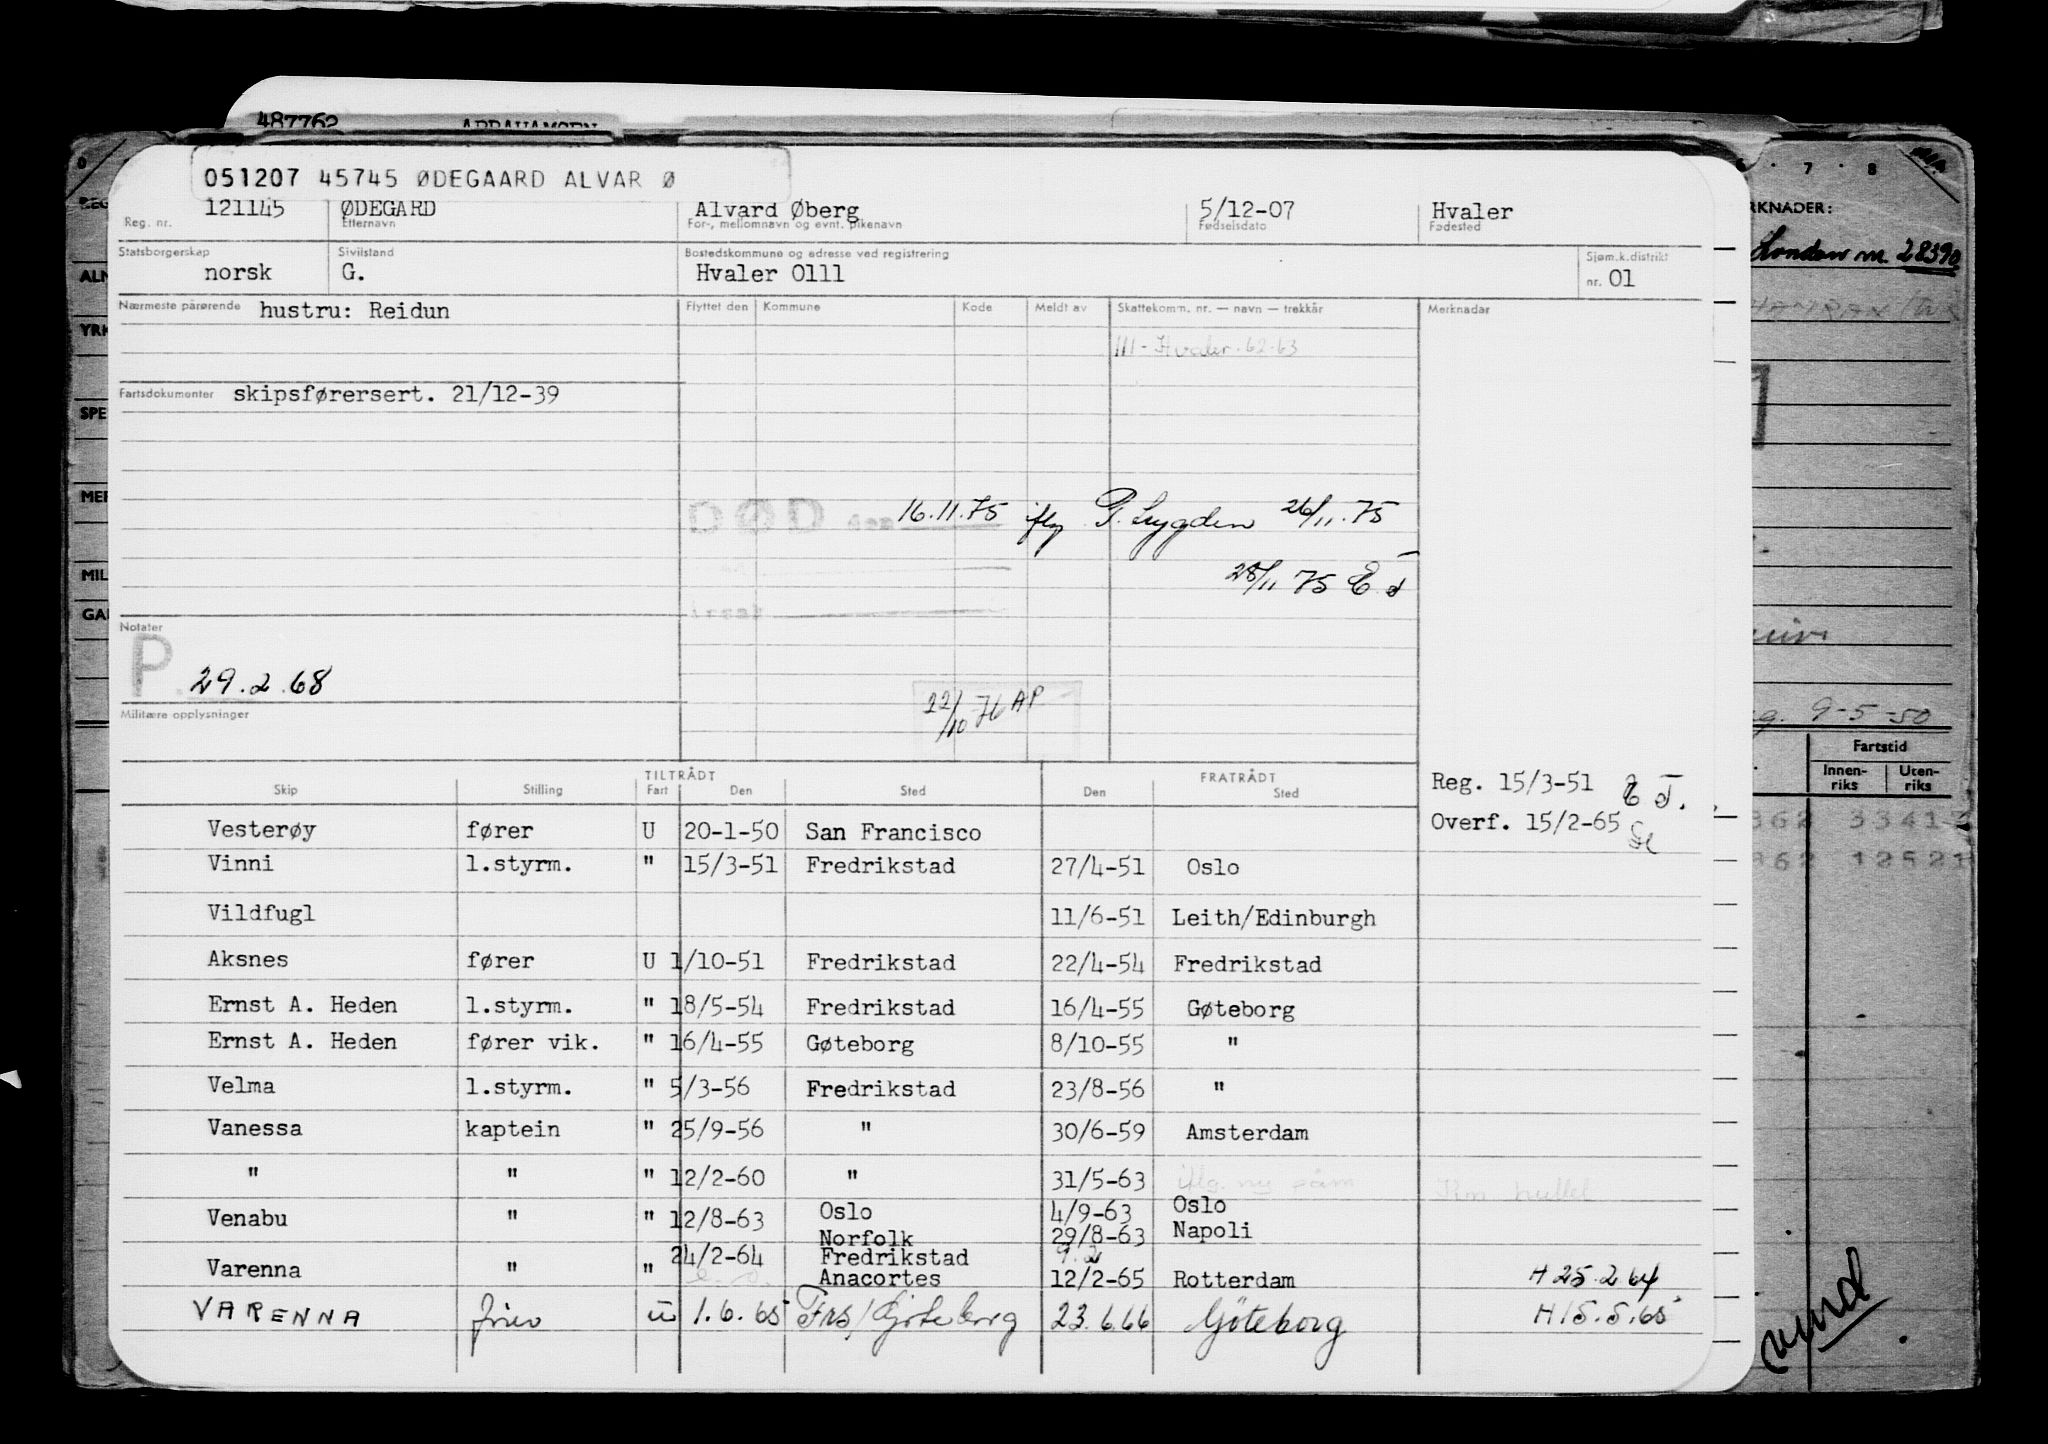 487762 ABRAHAMSEN
051207 45745 ØDEGAARD ALVAR Ø
121145 ØDEGARD Alvard Øberg 5/12-07 Hvaler
Reg. nr. Etternavn For-, mellomnavn og evnt. pikenavn Fødselsdato Fødested
Statsborgerskap Sivilstand Bostedskommune og adresse ved registrering Sjøm.k.distrikt
norsk G. Hvaler 0111 nr. 01
Nærmeste pårørende hustru: Reidun Flyttet den Kommune Kode Meldt av Skattekomm. nr. — navn — trekkår Merknader
111 - Hvaler. 62-63
Fartsdokumenter skipsførersert. 21/12-39
DØD 16.11.75 iflg P. Lygden 26/11.75
28/11 75
Notater
P 29.2.68
22/10 76 AP
Militære opplysninger
TILTRÅDT FRATRÅDT Reg. 15/3-51
Skip Stilling Fart Den Sted Den Sted
Overf. 15/2-65
Vesterøy fører U 20-1-50 San Francisco
Vinni 1.styrm. " 15/3-51 Fredrikstad 27/4-51 Oslo
Vildfugl 11/6-51 Leith/Edinburgh
Aksnes fører U 1/10-51 Fredrikstad 22/4-54 Fredrikstad
Ernst A. Heden 1.styrm. " 18/5-54 Fredrikstad 16/4-55 Gøteborg
Ernst A. Heden fører vik. " 16/4-55 Gøteborg 8/10-55 "
Velma 1.styrm. " 5/3-56 Fredrikstad 23/8-56 "
Vanessa kaptein " 25/9-56 " 30/6-59 Amsterdam
" " " 12/2-60 " 31/5-63
Venabu " " 12/8-63 Oslo 4/9-63 Oslo
Norfolk 29/8-63 Napoli
Varenna " " 24/2-64 Fredrikstad 9.2
Anacortes 12/2-65 Rotterdam H 25.2 64
VARENNA fører u 1.6.65 Frs/Gøteborg 23.6.66 Göteborg H 15.5.65
6 . 7 . 8
London nr. 28390
9-5-50
Fartstid
Innen-riks Uten-riks